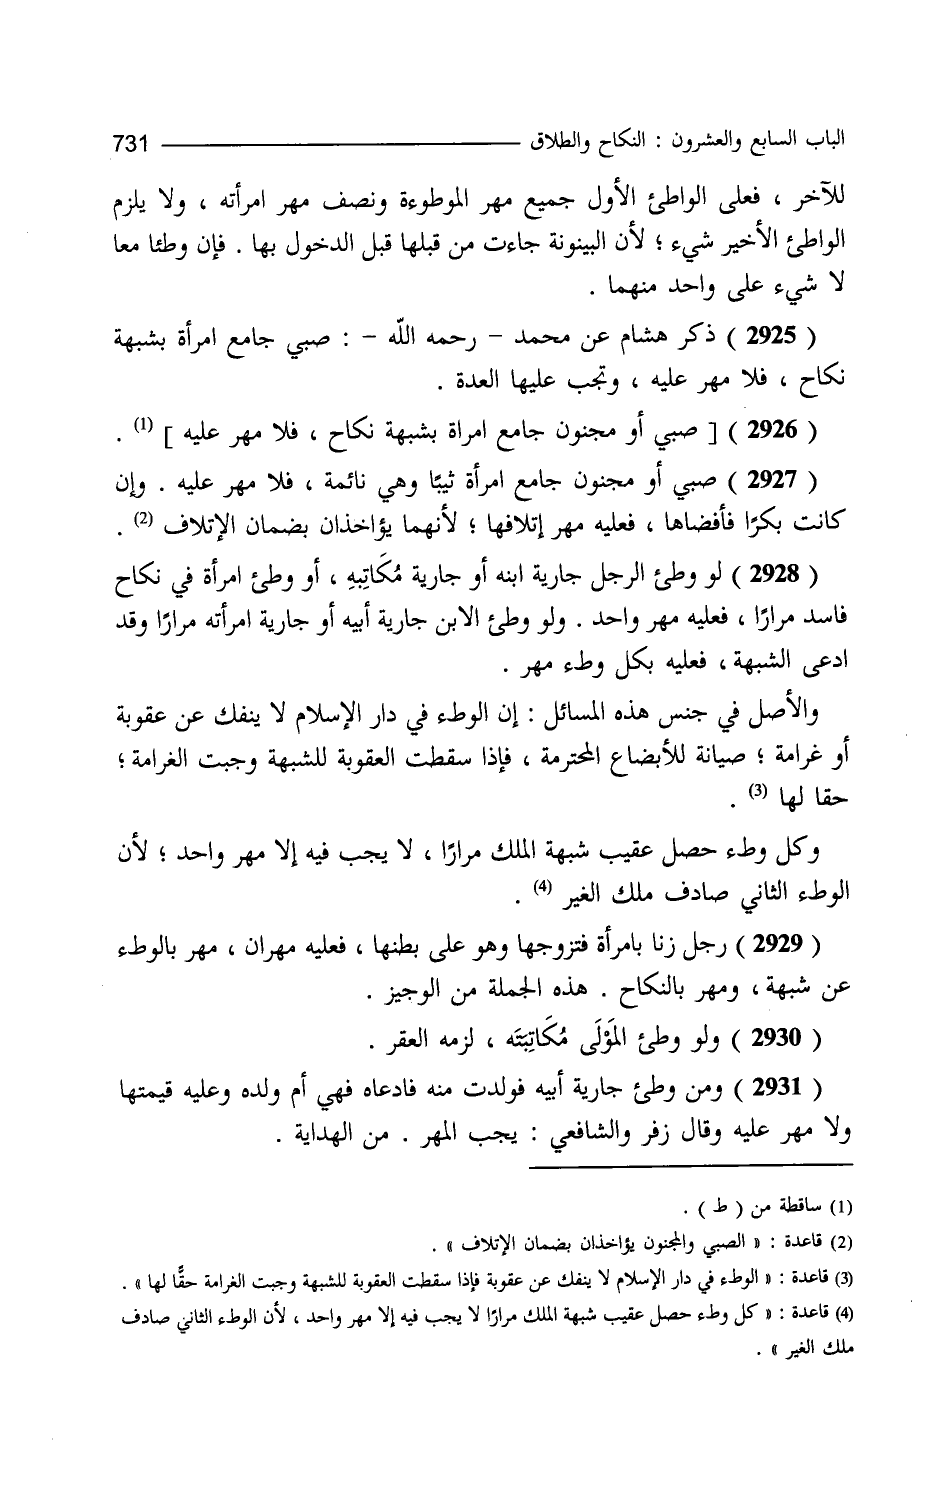 الباب السابع والعشرون : النكاح والطلاق 731
للآخر ، فعلى الواطئ الأول جميع مهر الموطوءة ونصف مهر امرأته ، ولا يلزم
الواطئ الأخير شيء ؛ لأن البينونة جاءت من قبلها قبل الدخول بها . فإن وطئا معا
لا شيء على واحد منهما .
( 2925 ) ذكر هشام عن محمد – رحمه اللّه – : صبي جامع امرأة بشبهة
نكاح ، فلا مهر عليه ، وتجب عليها العدة .
( 2926 ) [ صبي أو مجنون جامع امراة بشبهة نكاح ، فلا مهر عليه ] (1) .
( 2927 ) صبي أو مجنون جامع امرأة ثيبًا وهي نائمة ، فلا مهر عليه . وإن
كانت بكرًا فأفضاها ، فعليه مهر إتلافها ؛ لأنهما يؤاخذان بضمان الإتلاف (2) .
( 2928 ) لو وطئ الرجل جارية ابنه أو جارية مُكَاتِبِهِ ، أو وطئ امرأة في نكاح
فاسد مرارًا ، فعليه مهر واحد . ولو وطئ الابن جارية أبيه أو جارية امرأته مرارًا وقد
ادعى الشبهة ، فعليه بكل وطء مهر .
والأصل في جنس هذه المسائل : إن الوطء في دار الإسلام لا ينفك عن عقوبة
أو غرامة ؛ صيانة للأبضاع المحترمة ، فإذا سقطت العقوبة للشبهة وجبت الغرامة ؛
حقا لها (3) .
وكل وطء حصل عقيب شبهة الملك مرارًا ، لا يجب فيه إلا مهر واحد ؛ لأن
الوطء الثاني صادف ملك الغير (4) .
( 2929 ) رجل زنا بامرأة فتزوجها وهو على بطنها ، فعليه مهران ، مهر بالوطء
عن شبهة ، ومهر بالنكاح . هذه الجملة من الوجيز .
( 2930 ) ولو وطئ المَوْلَى مُكَاتِبَتَه ، لزمه العقر .
( 2931 ) ومن وطئ جارية أبيه فولدت منه فادعاه فهي أم ولده وعليه قيمتها
ولا مهر عليه وقال زفر والشافعي : يجب المهر . من الهداية .
(1) ساقطة من ( ط ) .
(2) قاعدة : « الصبي والمجنون يؤاخذان بضمان الإتلاف » .
(3) قاعدة : « الوطء في دار الإسلام لا ينفك عن عقوبة فإذا سقطت العقوبة للشبهة وجبت الغرامة حقًّا لها » .
(4) قاعدة : « كل وطء حصل عقيب شبهة الملك مرارًا لا يجب فيه إلا مهر واحد ، لأن الوطء الثاني صادف
ملك الغير » .